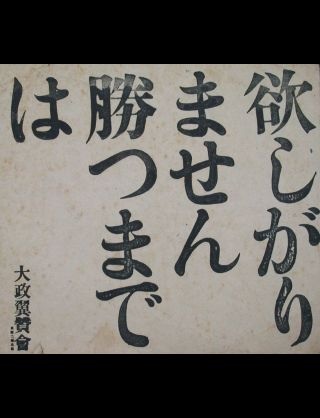 欲しがり
ません
勝つまで
は
大政翼贊會